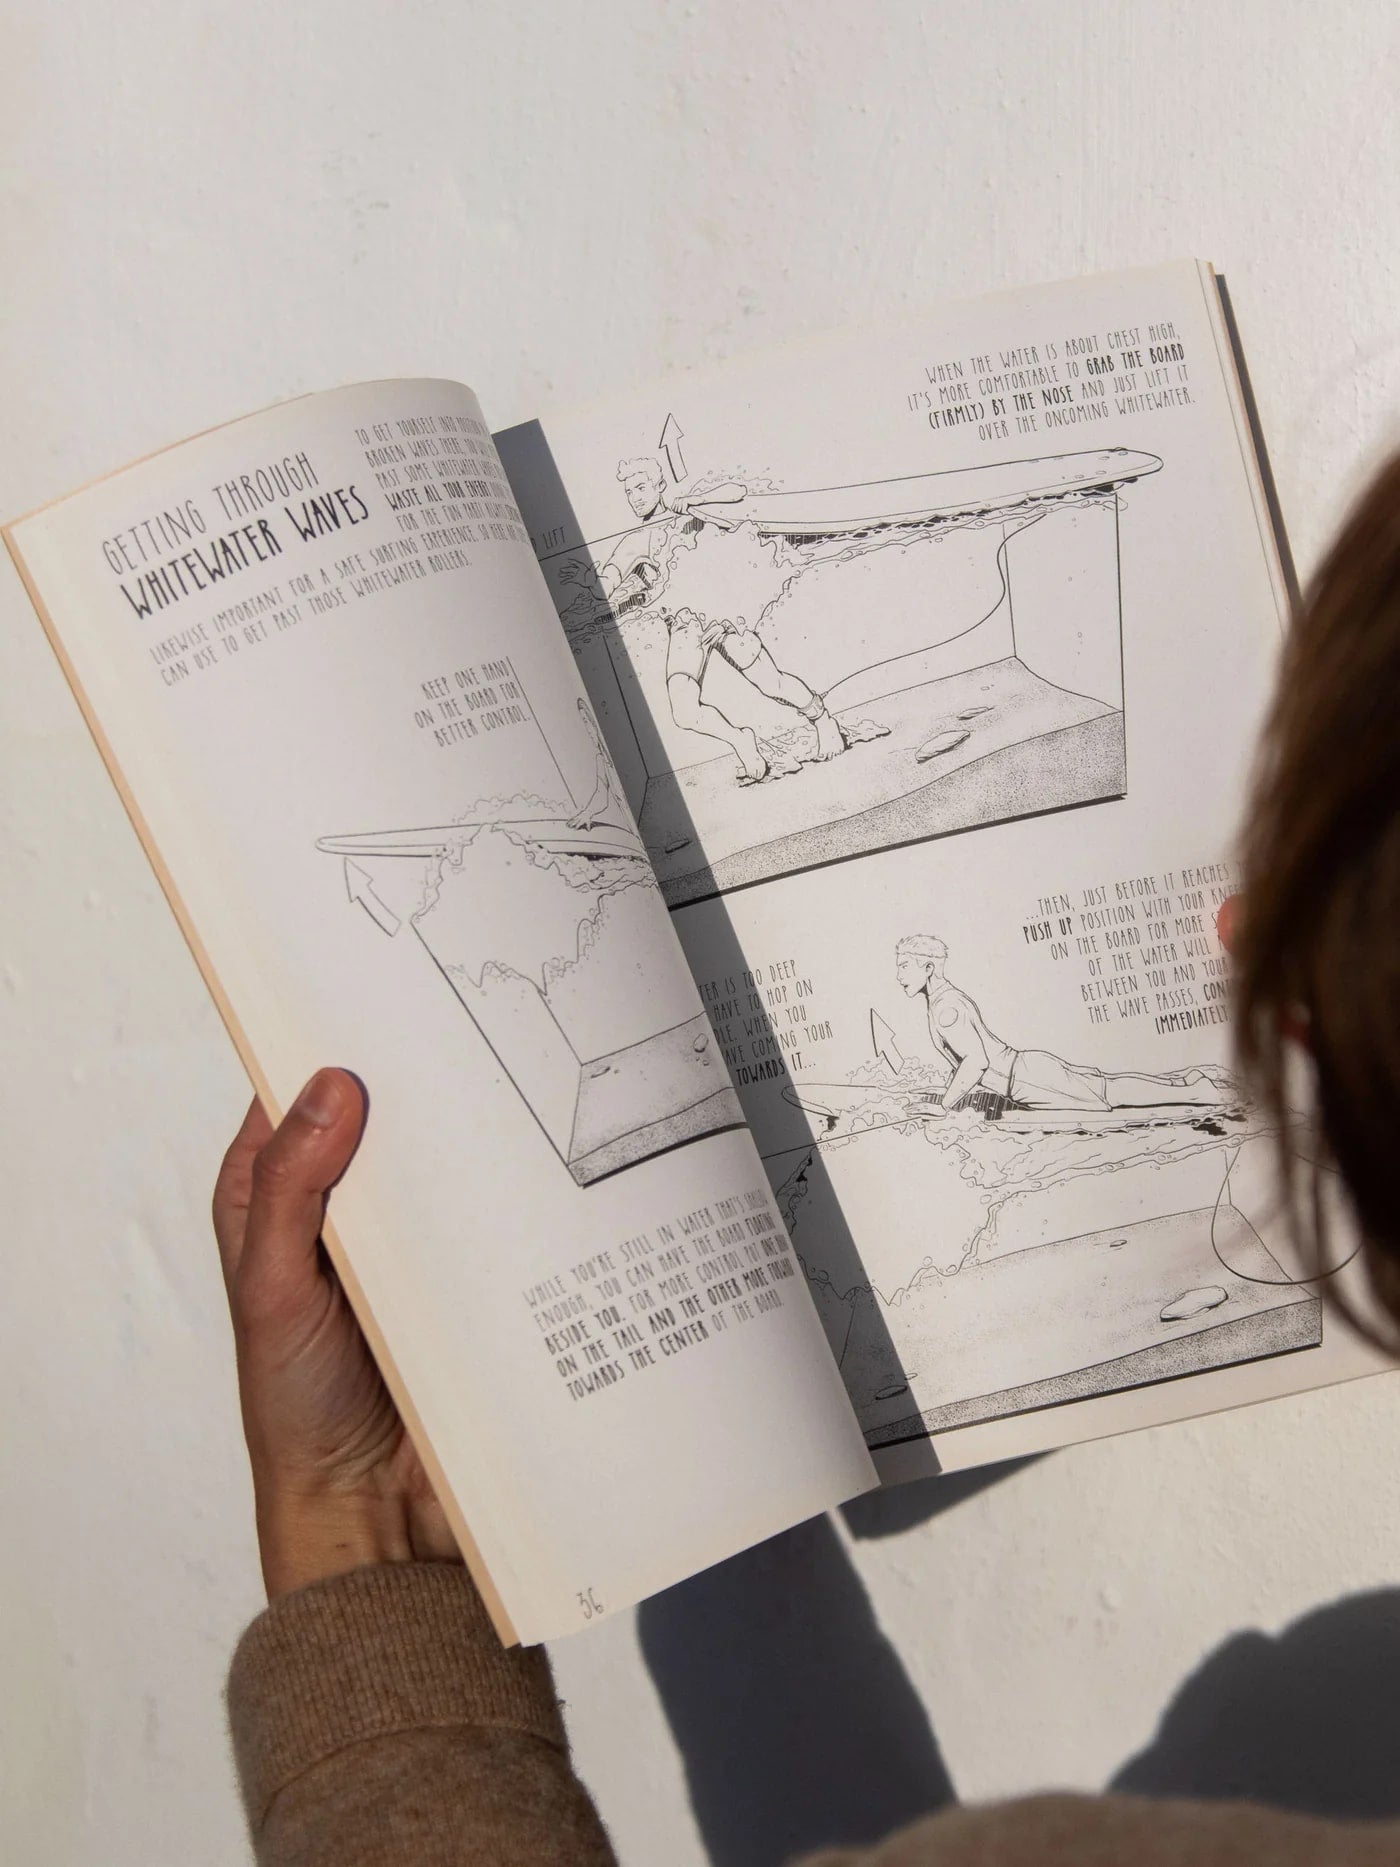 GETTING THROUGH
WHITEWATER WAVES
TO GET YOURSELF INTO POSITION
BROKEN WAVES THERE, YOU
PAST SOME WHITEWATER
WASTE ALL YOUR ENERGY
FOR THE FUN PART.
LIKEWISE IMPORTANT FOR A SAFE SURFING EXPERIENCE, SO HERE ARE
CAN USE TO GET PAST THOSE WHITEWATER ROLLERS.
KEEP ONE HAND
ON THE BOARD FOR
BETTER CONTROL.
WHILE YOU'RE STILL IN WATER THAT'S
ENOUGH, YOU CAN HAVE THE BOARD FLOATING
BESIDE YOU. FOR MORE CONTROL PUT ONE
ON THE TAIL AND THE OTHER MORE TOWARDS
TOWARDS THE CENTER OF THE BOARD.
36
WHEN THE WATER IS ABOUT CHEST HIGH,
IT'S MORE COMFORTABLE TO GRAB THE BOARD
(FIRMLY) BY THE NOSE AND JUST LIFT IT
OVER THE ONCOMING WHITEWATER.
LIFT
IS TOO DEEP
HAVE TO HOP ON
WHEN YOU
COMING YOUR
TOWARDS IT...
...THEN, JUST BEFORE IT REACHES
PUSH UP POSITION WITH YOUR
ON THE BOARD FOR MORE
OF THE WATER WILL
BETWEEN YOU AND YOUR
THE WAVE PASSES,
IMMEDIATELY